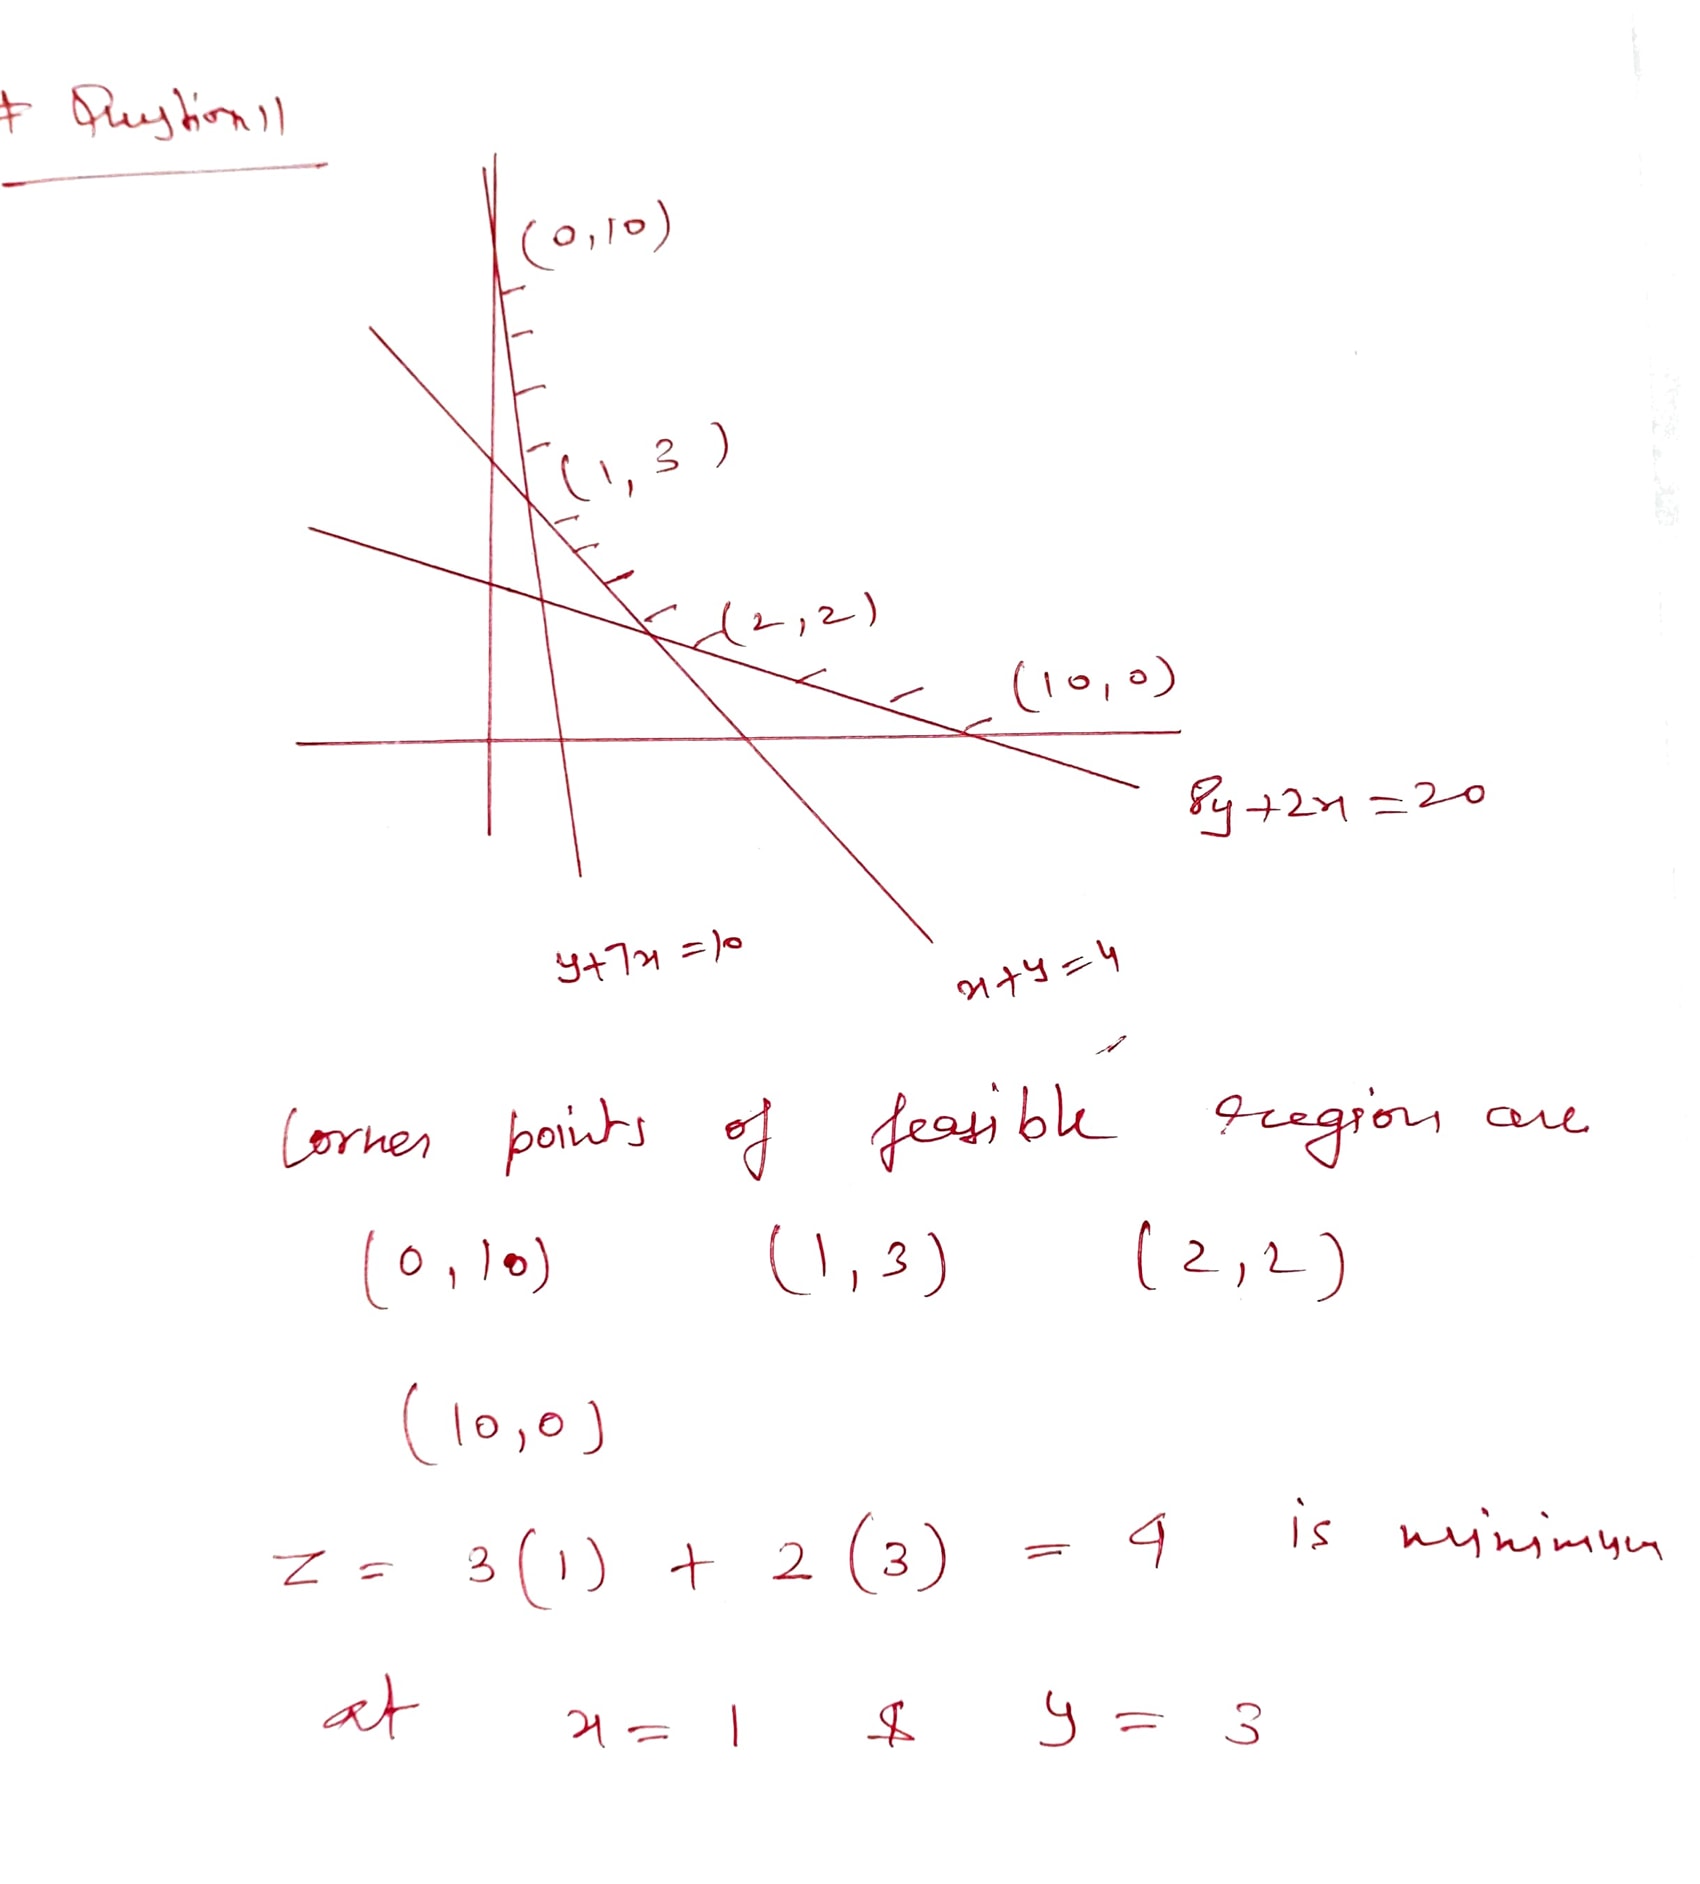 * Question 11
(0,10)
(1, 3)
(2,2)
(10,0)
8y+2x=20
y+7x=10
x+y=4
Corner points of feasible region are
(0,10) (1,3) (2,2)
(10,0)
z = 3(1) + 2(3) = 9 is minimum
at x = 1 & y = 3